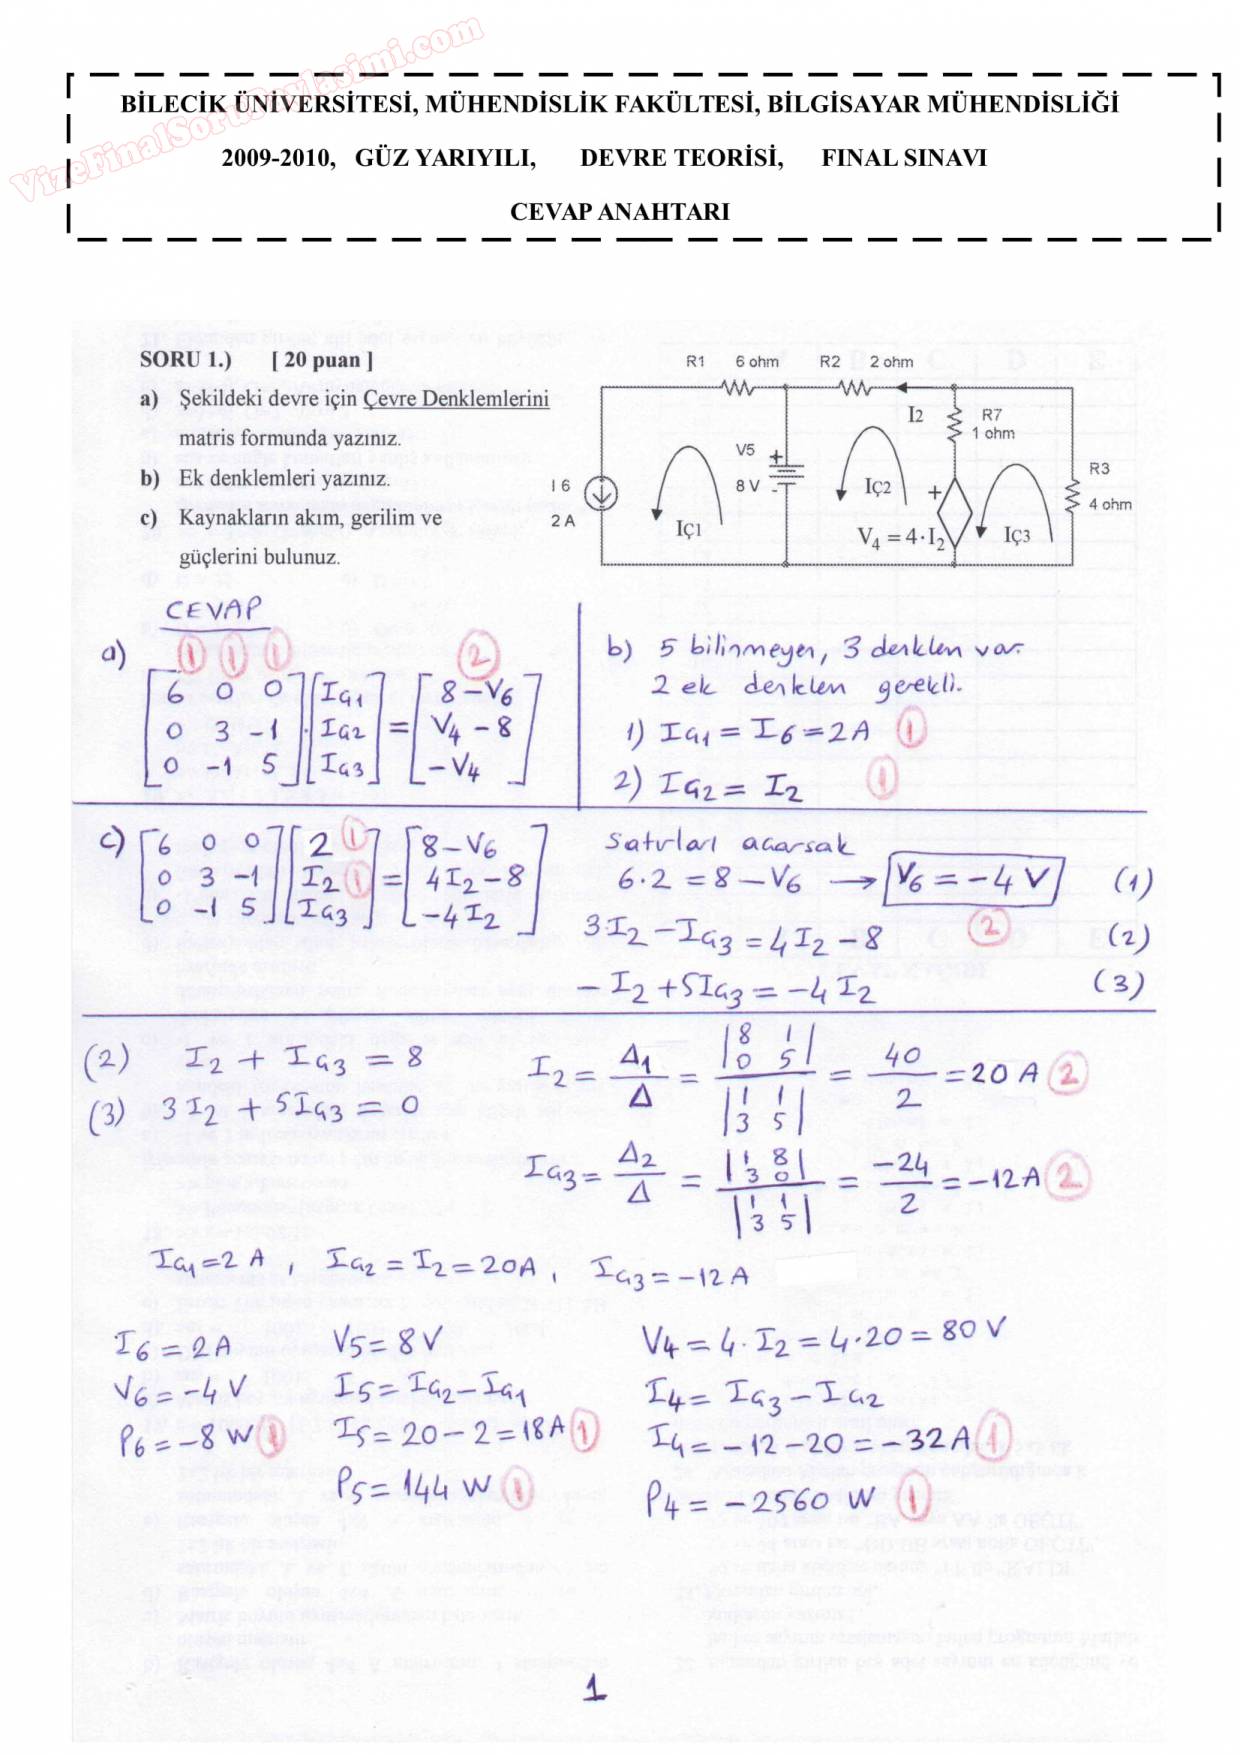 VizeFinalSoruPaylasimi.com
BİLECİK ÜNİVERSİTESİ, MÜHENDİSLİK FAKÜLTESİ, BİLGİSAYAR MÜHENDİSLİĞİ
2009-2010, GÜZ YARIYILI, DEVRE TEORİSİ, FINAL SINAVI
CEVAP ANAHTARI
SORU 1.) [ 20 puan ]
a) Şekildeki devre için Çevre Denklemlerini
matris formunda yazınız.
b) Ek denklemleri yazınız.
c) Kaynakların akım, gerilim ve
güçlerini bulunuz.
R1 6 ohm R2 2 ohm
I2 R7
1 ohm
V5
8 V
+
-
R3
4 ohm
I 6
2 A
IÇ1
IÇ2
+
V4 = 4·I2
IÇ3
CEVAP
a) 1 1 1 2
6 0 0 IG1 8 - V6
0 3 -1 · IG2 = V4 - 8
0 -1 5 IG3 - V4
b) 5 bilinmeyen, 3 denklem var.
2 ek denklem gerekli.
1) IG1 = I6 = 2A 1
2) IG2 = I2 1
c) 6 0 0 2 1 8 - V6
0 3 -1 I2 1 = 4I2 - 8
0 -1 5 IG3 -4I2
Satırları açarsak
6·2 = 8 - V6 → V6 = -4 V (1)
2
3·I2 - IG3 = 4I2 - 8 (2)
- I2 + 5IG3 = -4I2 (3)
(2) I2 + IG3 = 8
(3) 3I2 + 5IG3 = 0
I2 = Δ1/Δ = |8 1; 0 5| / |1 1; 3 5| = 40/2 = 20 A 2
IG3 = Δ2/Δ = |1 8; 3 0| / |1 1; 3 5| = -24/2 = -12A 2
IG1 = 2 A , IG2 = I2 = 20A , IG3 = -12 A
I6 = 2A
V6 = -4 V
P6 = -8 W 1
V5 = 8 V
I5 = IG2 - IG1
I5 = 20 - 2 = 18A 1
P5 = 144 W 1
V4 = 4·I2 = 4·20 = 80 V
I4 = IG3 - IG2
I4 = -12 - 20 = -32 A 1
P4 = -2560 W 1
1